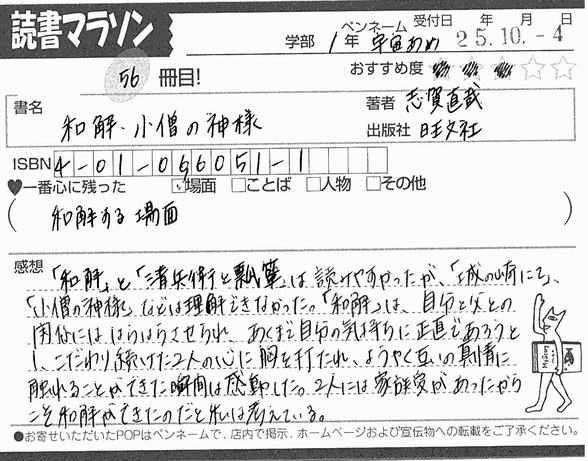 読書マラソン
学部 1年 ペンネーム 宇宙あめ 受付日 年 月 日
25.10.-4
56 冊目!
おすすめ度 ★★★☆☆
書名 和解・小僧の神様
著者 志賀直哉
出版社 旺文社
ISBN 4-01-066051-1
♥一番心に残った ☑場面 □ことば □人物 □その他
(和解する場面)
感想 「和解」と「清兵衛と瓢箪」は読みやすかったが、「城の崎にて」、
「小僧の神様」などは理解できなかった。「和解」は、自分と父との
関係にははらはらさせられ、あくまで自分の気持ちに正直であろうと
し、こだわり続けた2人の心に胸を打たれ、ようやく互いの真情に
触れることができた瞬間は感動した。2人には家族愛があったから
こそ和解ができたのだと私は考えている。
●お寄せいただいたPOPはペンネームで、店内で掲示、ホームページおよび宣伝物への転載をご了承ください。